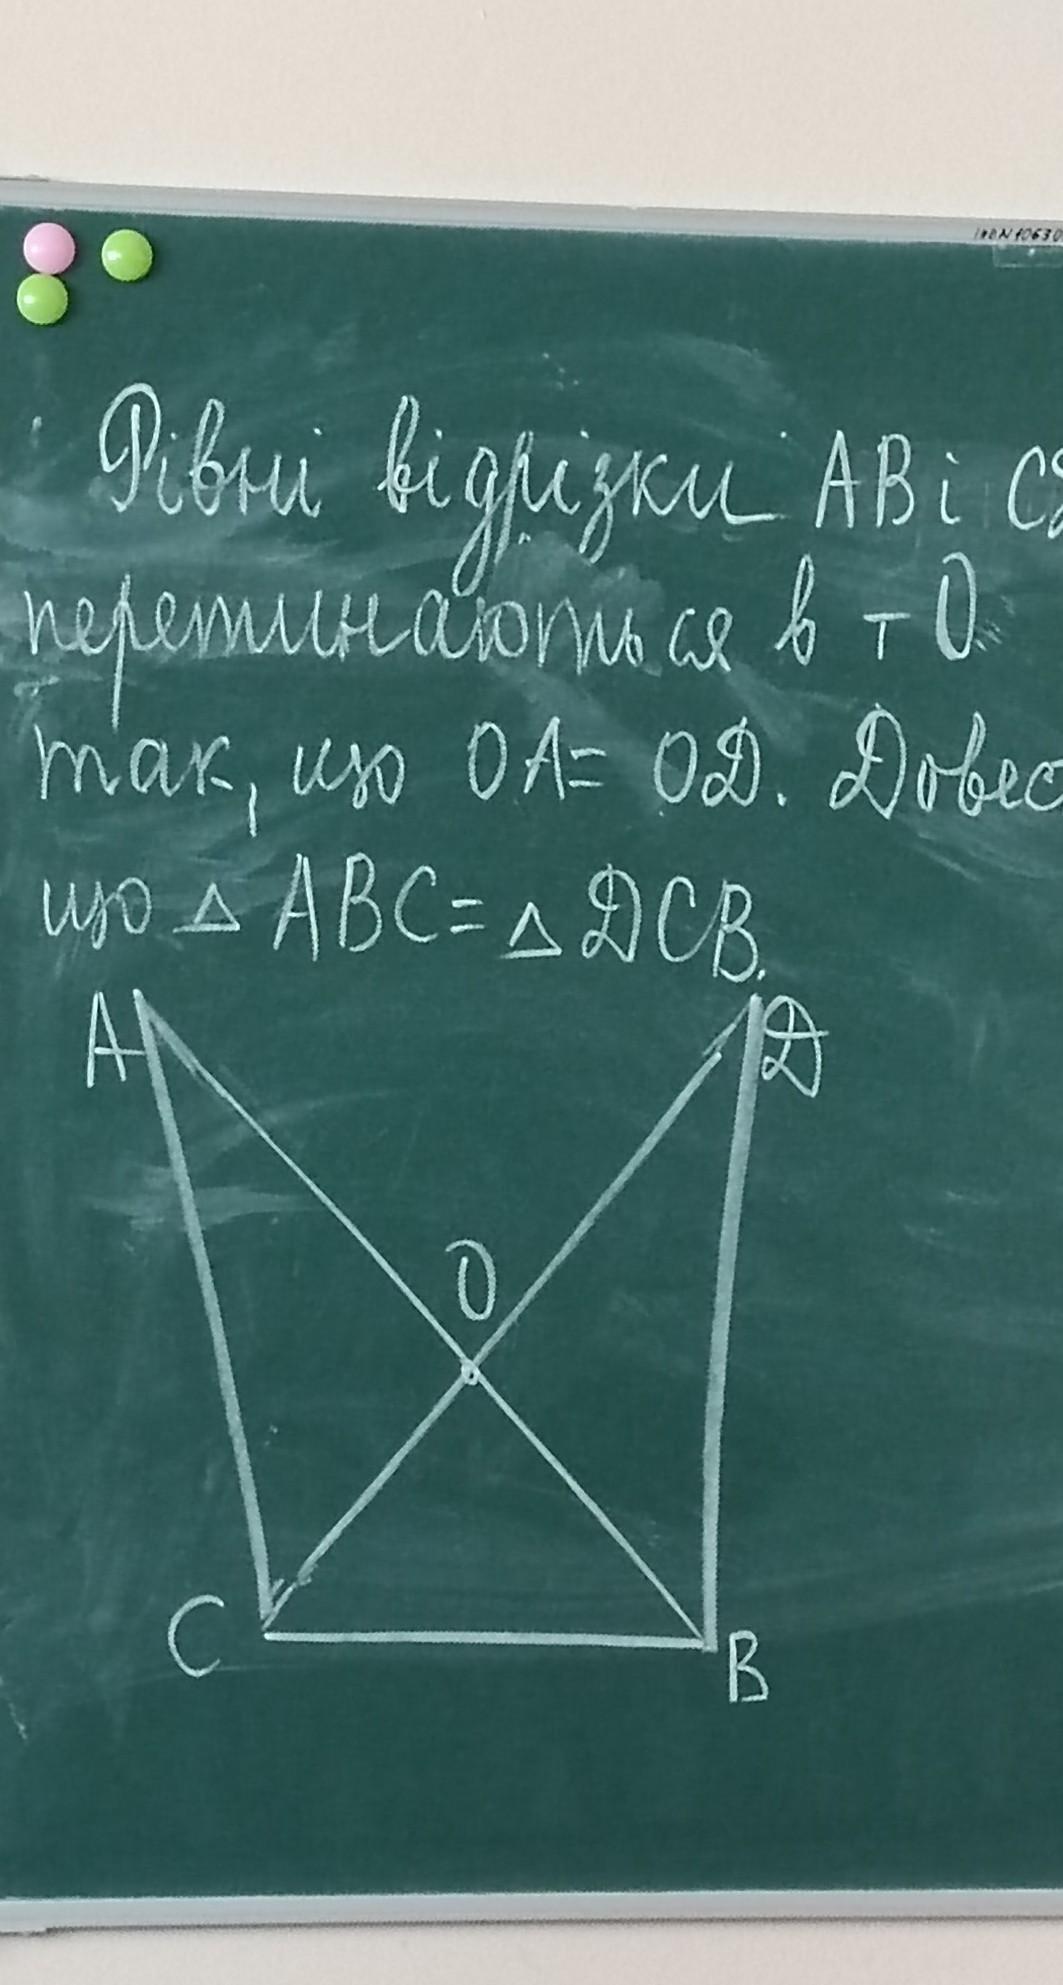 Рівні відрізки AB і CD
перетинаються в т O
так, що OA = OD. Довес
що △ ABC = △ DCB.
A
D
O
C
B